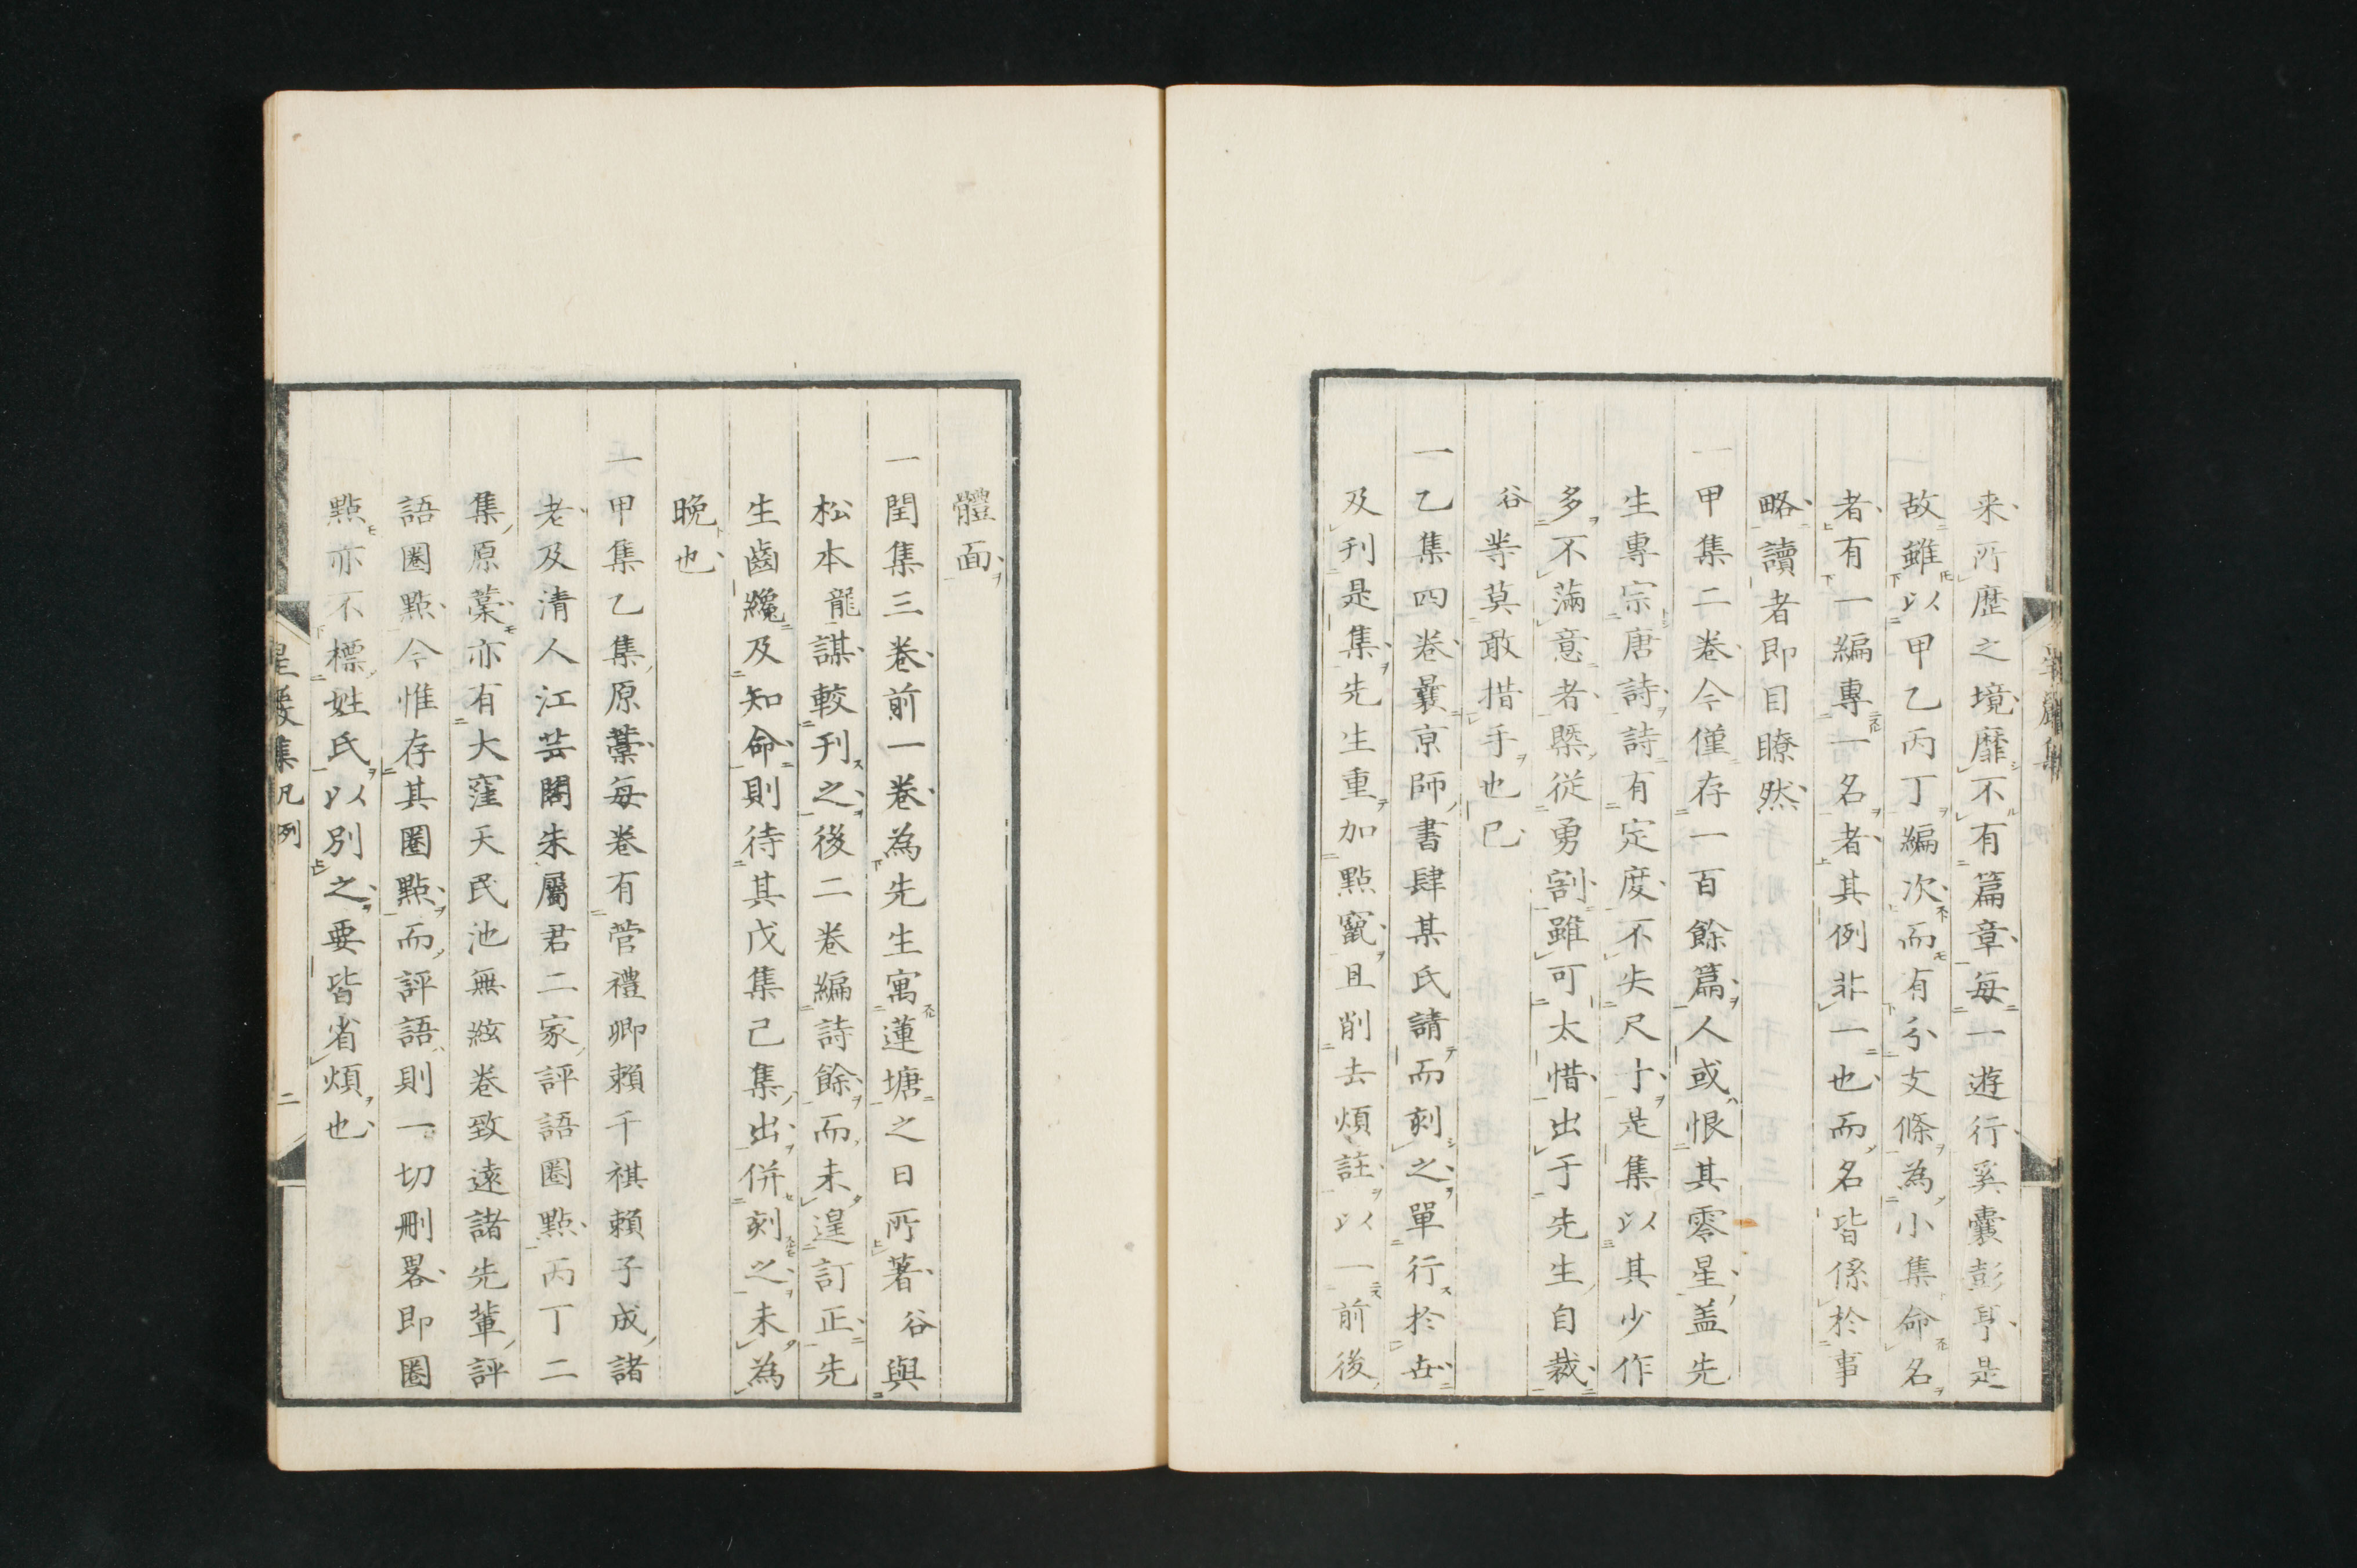 来所歴之境靡不有篇章每一遊行奚囊彭亨是
故雖以甲乙丙丁編次而有分支條為小集命名
者有一編專一名者其例非一也而名皆係於事
略讀者即目瞭然
一甲集二卷今僅存一百餘篇人或恨其零星盖先
生專宗唐詩詩有定度不失尺寸是集以其少作
多不滿意者槩従勇割雖可太惜出于先生自裁
谷等莫敢措手也已
一乙集四卷曩京師書肆某氏請而刻之單行於世
及刊是集先生重加點竄且削去煩註以一前後
體面
一閏集三卷前一卷為先生寓蓮塘之日所著谷與
松本龍謀較刊之後二卷編詩餘而未遑訂正先
生齒纔及知命則待其戊集己集出併刻之未為
晩也
一甲集乙集原藁每卷有菅禮卿賴千祺賴子成諸
老及清人江芸閣朱屬君二家評語圏點丙丁二
集原藁亦有大窪天民池無絃卷致遠諸先輩評
語圏點今惟存其圏點而評語則一切刪畧即圏
點亦不標姓氏以別之要皆省煩也
星巖集凡例
二